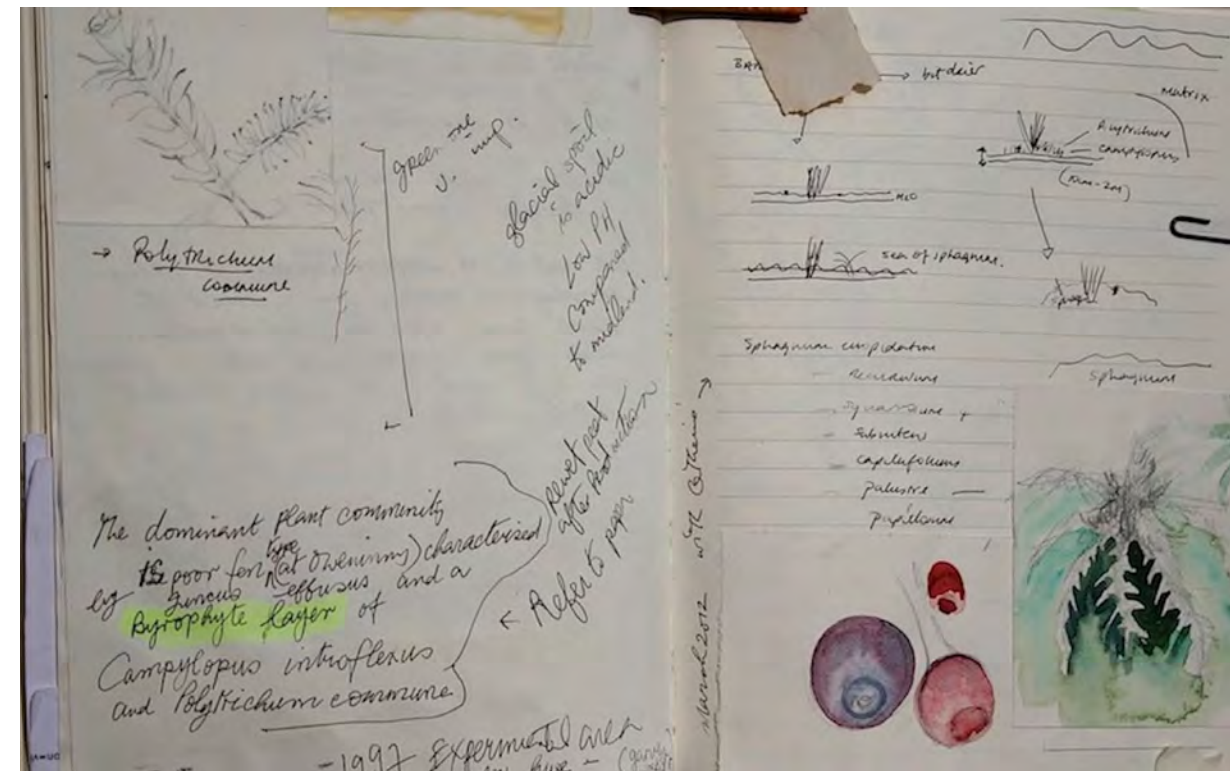 → Polytrichum
commune
green one
glacial spoil
is acidic
Low PH
Compared
to midland.
The dominant plant community
is poor fen type (at Oweninny) characterised
by Juncus effusus and a
Byrophyte layer of
Campylopus introflexus
and Polytrichum commune
rewet peat
after production
← Refer to paper
-1997 Experimental area
→ but drier
Matrix
Polytrichum
Campylopus
H2O
sea of sphagnum.
Sphagnum cuspidatum
recurvum
squarrosum
subnitens
capillifolium
palustre
papillosum
sphagnum
March 2012 with Catherine →